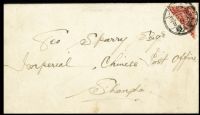 Geo Sparry Esqr
Imperial Chinese Post Office
Shanghai